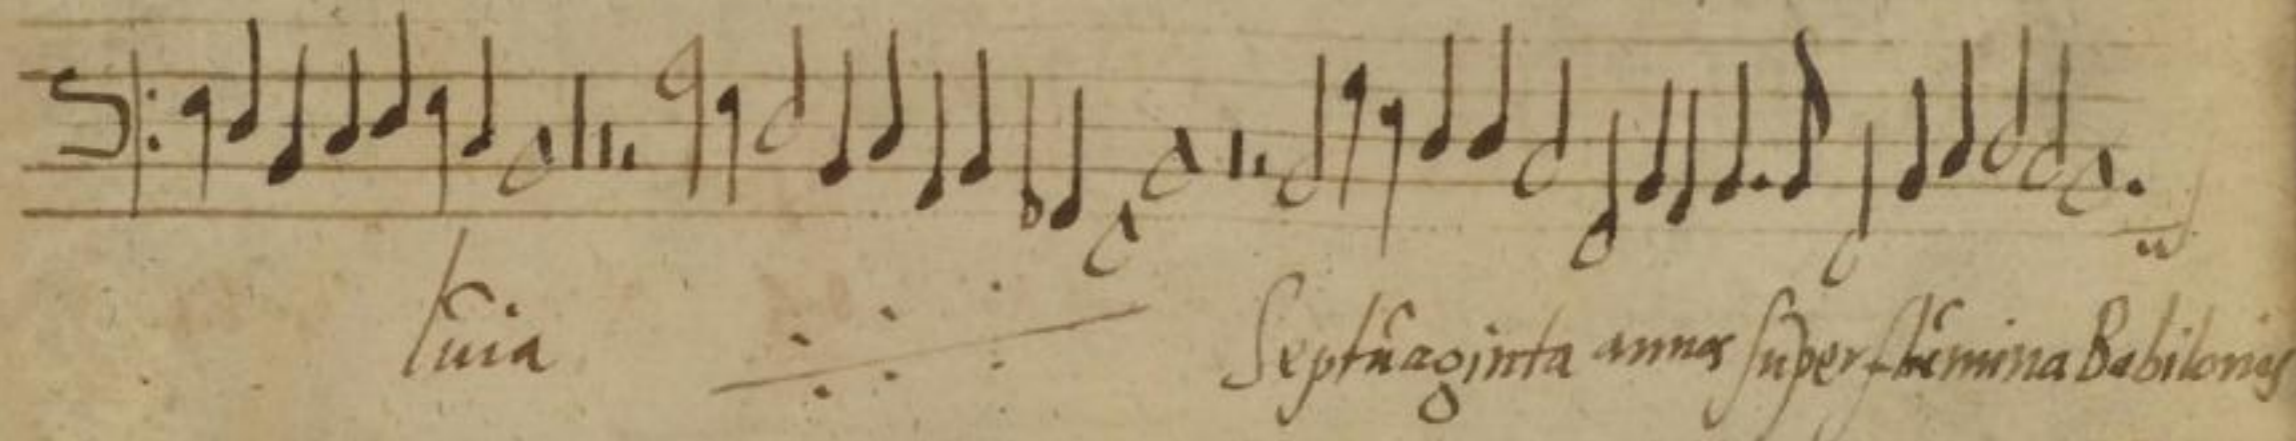 luia Septuaginta annos super flumina Babilonis